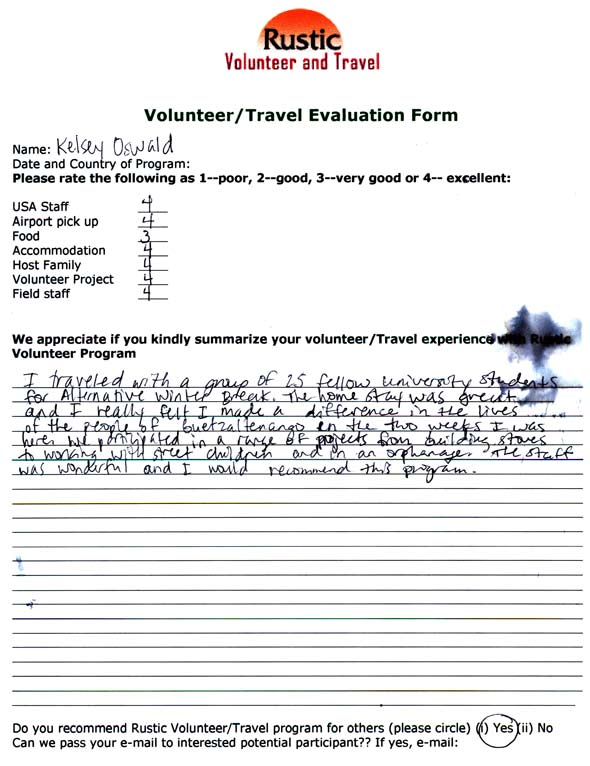 Rustic
Volunteer and Travel
Volunteer/Travel Evaluation Form
Name: Kelsey Oswald
Date and Country of Program:
Please rate the following as 1--poor, 2--good, 3--very good or 4-- excellent:
USA Staff 4
Airport pick up 4
Food 3
Accommodation 4
Host Family 4
Volunteer Project 4
Field staff 4
We appreciate if you kindly summarize your volunteer/Travel experience with Rustic
Volunteer Program
I traveled with a group of 25 fellow university students
for Alternative Winter Break. The home stay was great
and I really felt I made a difference in the lives
of the people of Quetzaltenango in the two weeks I was
here. We participated in a range of projects from building stoves
to working with street children and in an orphanage. The staff
was wonderful and I would recommend this program.
Do you recommend Rustic Volunteer/Travel program for others (please circle) (i) Yes (ii) No
Can we pass your e-mail to interested potential participant?? If yes, e-mail: